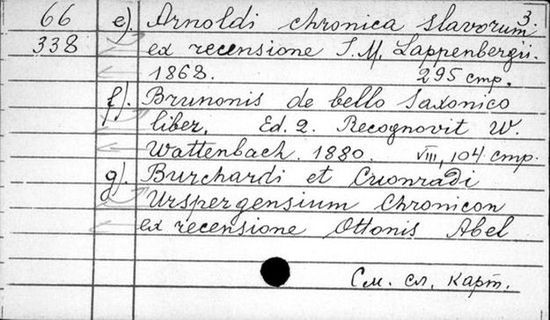 3.
66 e). Arnoldi chronica slavorum
338 ex recensione I. M. Lappenbergii.
1868. 295 стр.
f). Brunonis de bello Saxonico
liber. Ed. 2. Recognovit W.
Wattenbach. 1880. VIII, 104 стр.
g). Burchardi et Cuonradi
Urspergensium Chronicon
ex recensione Ottonis Abel
См. сл. карт.